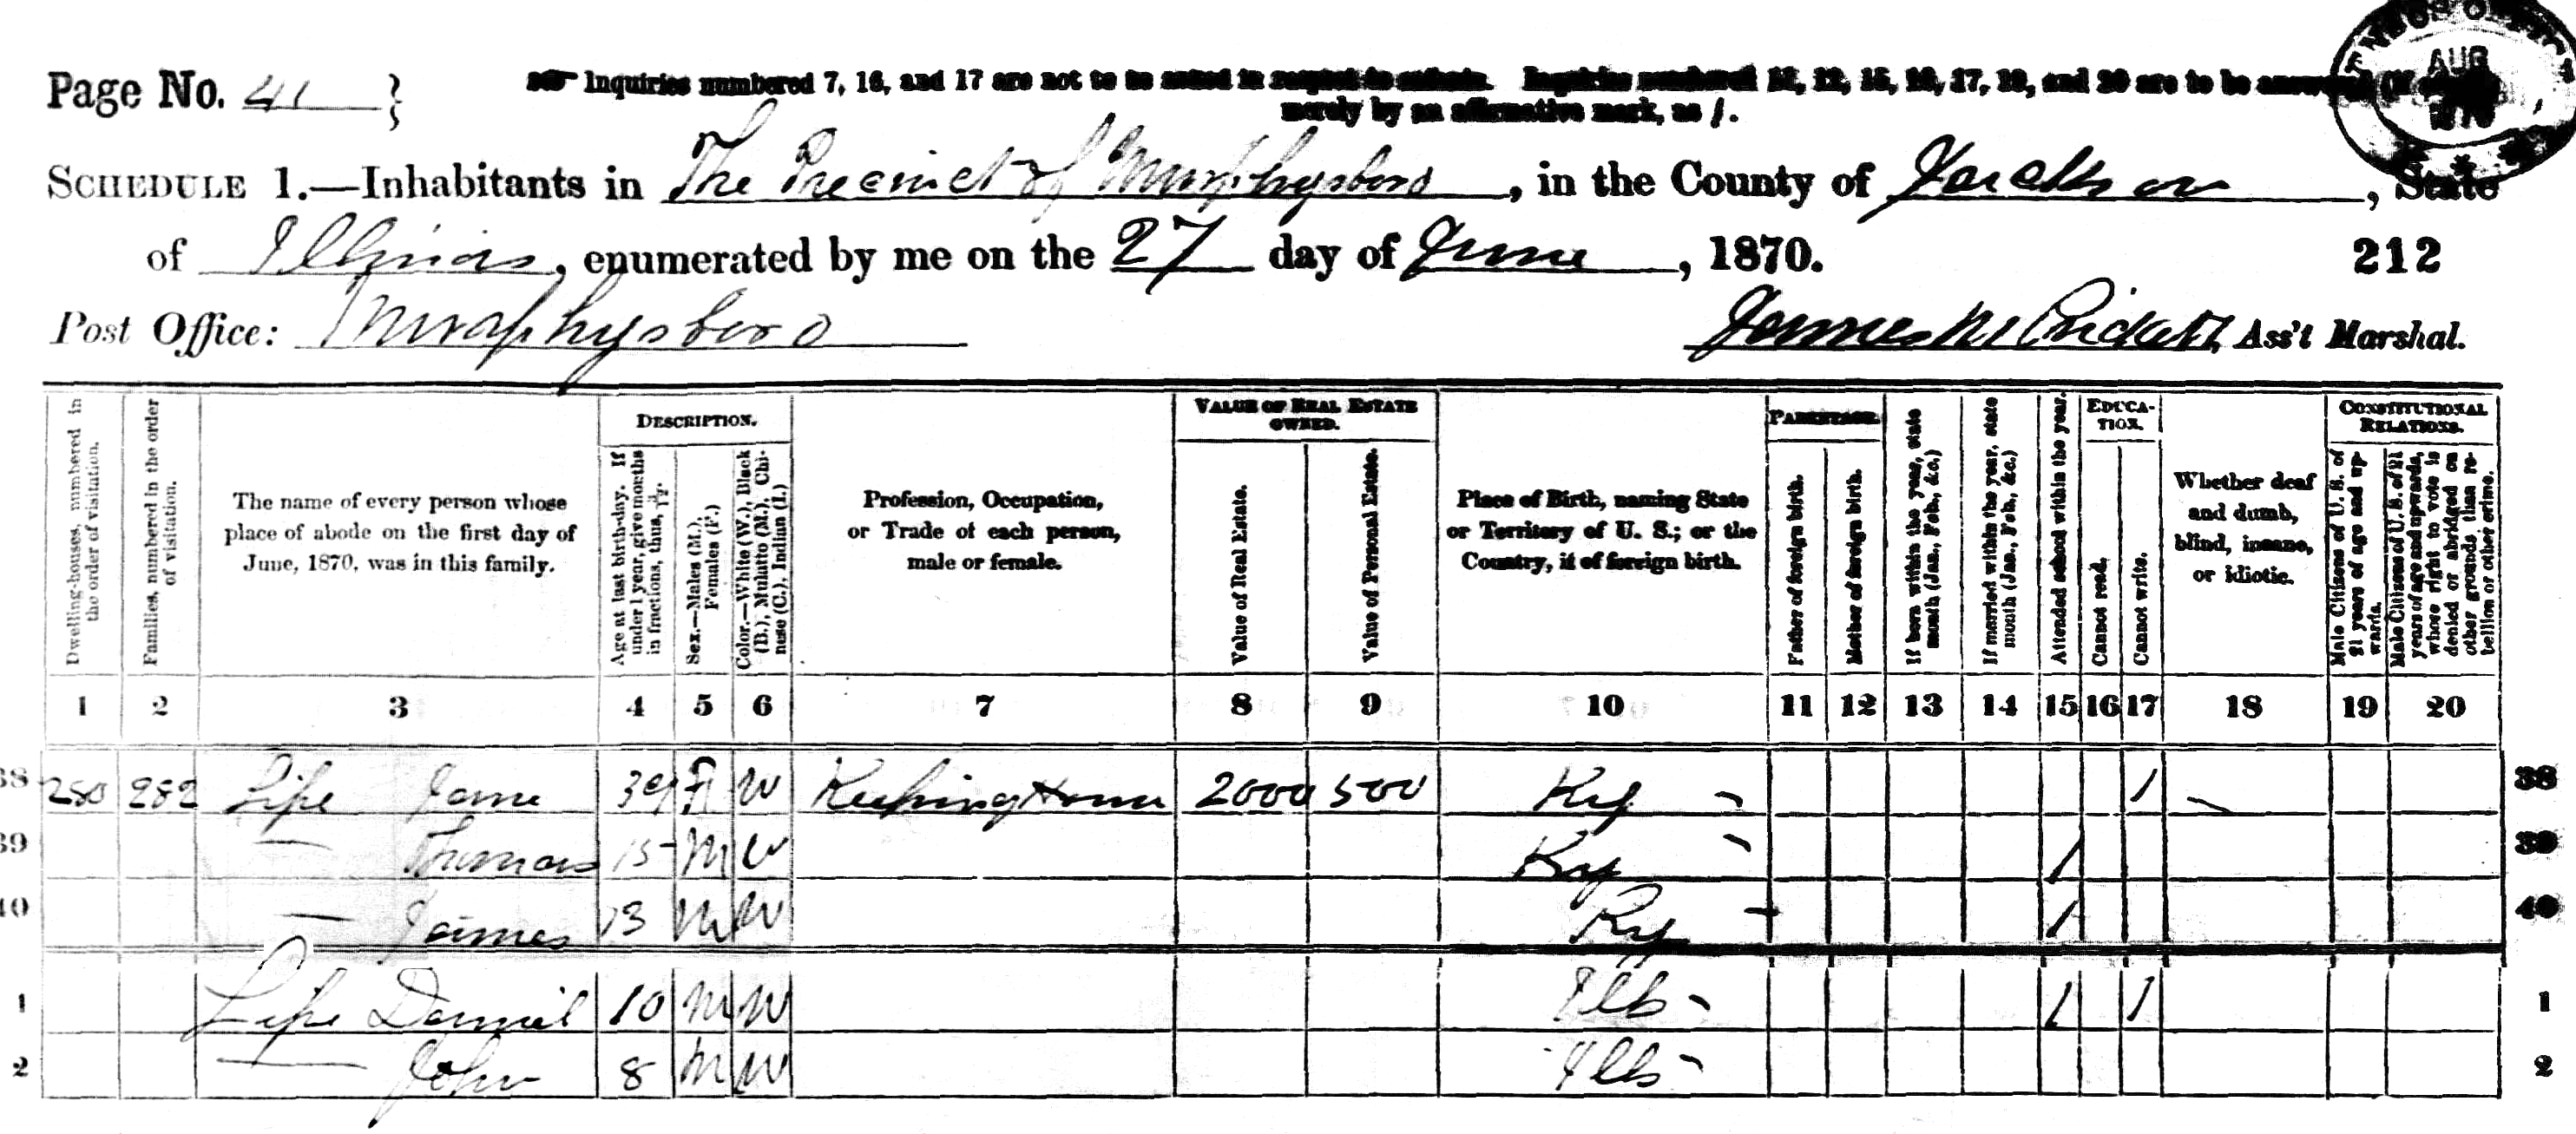 Page No. 41
Inquiries numbered 7, 16, and 17 are not to be asked in respect to infants. Inquiries numbered 11, 12, 15, 16, 17, 19, and 20 are to be answered
merely by an affirmative mark, as /.
AUG
1870
SCHEDULE 1.—Inhabitants in The Precinct of Murphysboro, in the County of Jackson, State
of Illinois, enumerated by me on the 27 day of June, 1870.
212
Post Office: Murphysboro
James M Prickett, Ass't Marshal.
Dwelling-houses, numbered in the order of visitation.
Families, numbered in the order of visitation.
The name of every person whose place of abode on the first day of June, 1870, was in this family.
DESCRIPTION.
Age at last birth-day. If under 1 year, give months in fractions, thus, 3/12.
Sex.—Males (M.), Females (F.)
Color.—White (W.), Black (B.), Mulatto (M.), Chinese (C.), Indian (I.)
Profession, Occupation, or Trade of each person, male or female.
VALUE OF REAL ESTATE OWNED.
Value of Real Estate.
Value of Personal Estate.
Place of Birth, naming State or Territory of U. S.; or the Country, if of foreign birth.
PARENTAGE.
Father of foreign birth.
Mother of foreign birth.
If born within the year, state month (Jan., Feb., &c.)
If married within the year, state month (Jan., Feb., &c.)
Attended school within the year.
EDUCATION.
Cannot read.
Cannot write.
Whether deaf and dumb, blind, insane, or idiotic.
CONSTITUTIONAL RELATIONS.
Male Citizens of U. S. of 21 years of age and upwards.
Male Citizens of U. S. of 21 years of age and upwards, whose right to vote is denied or abridged on other grounds than rebellion or other crime.
1 2 3 4 5 6 7 8 9 10 11 12 13 14 15 16 17 18 19 20
38 280 282 Lipe Jane 39 F W Keeping House 2000 500 Ky / 38
39 — Thomas 15 M W Ky / 39
40 — James 13 M W Ky / 40
1 Lipe Daniel 10 M W Ills / / 1
2 — John 8 M W Ills 2